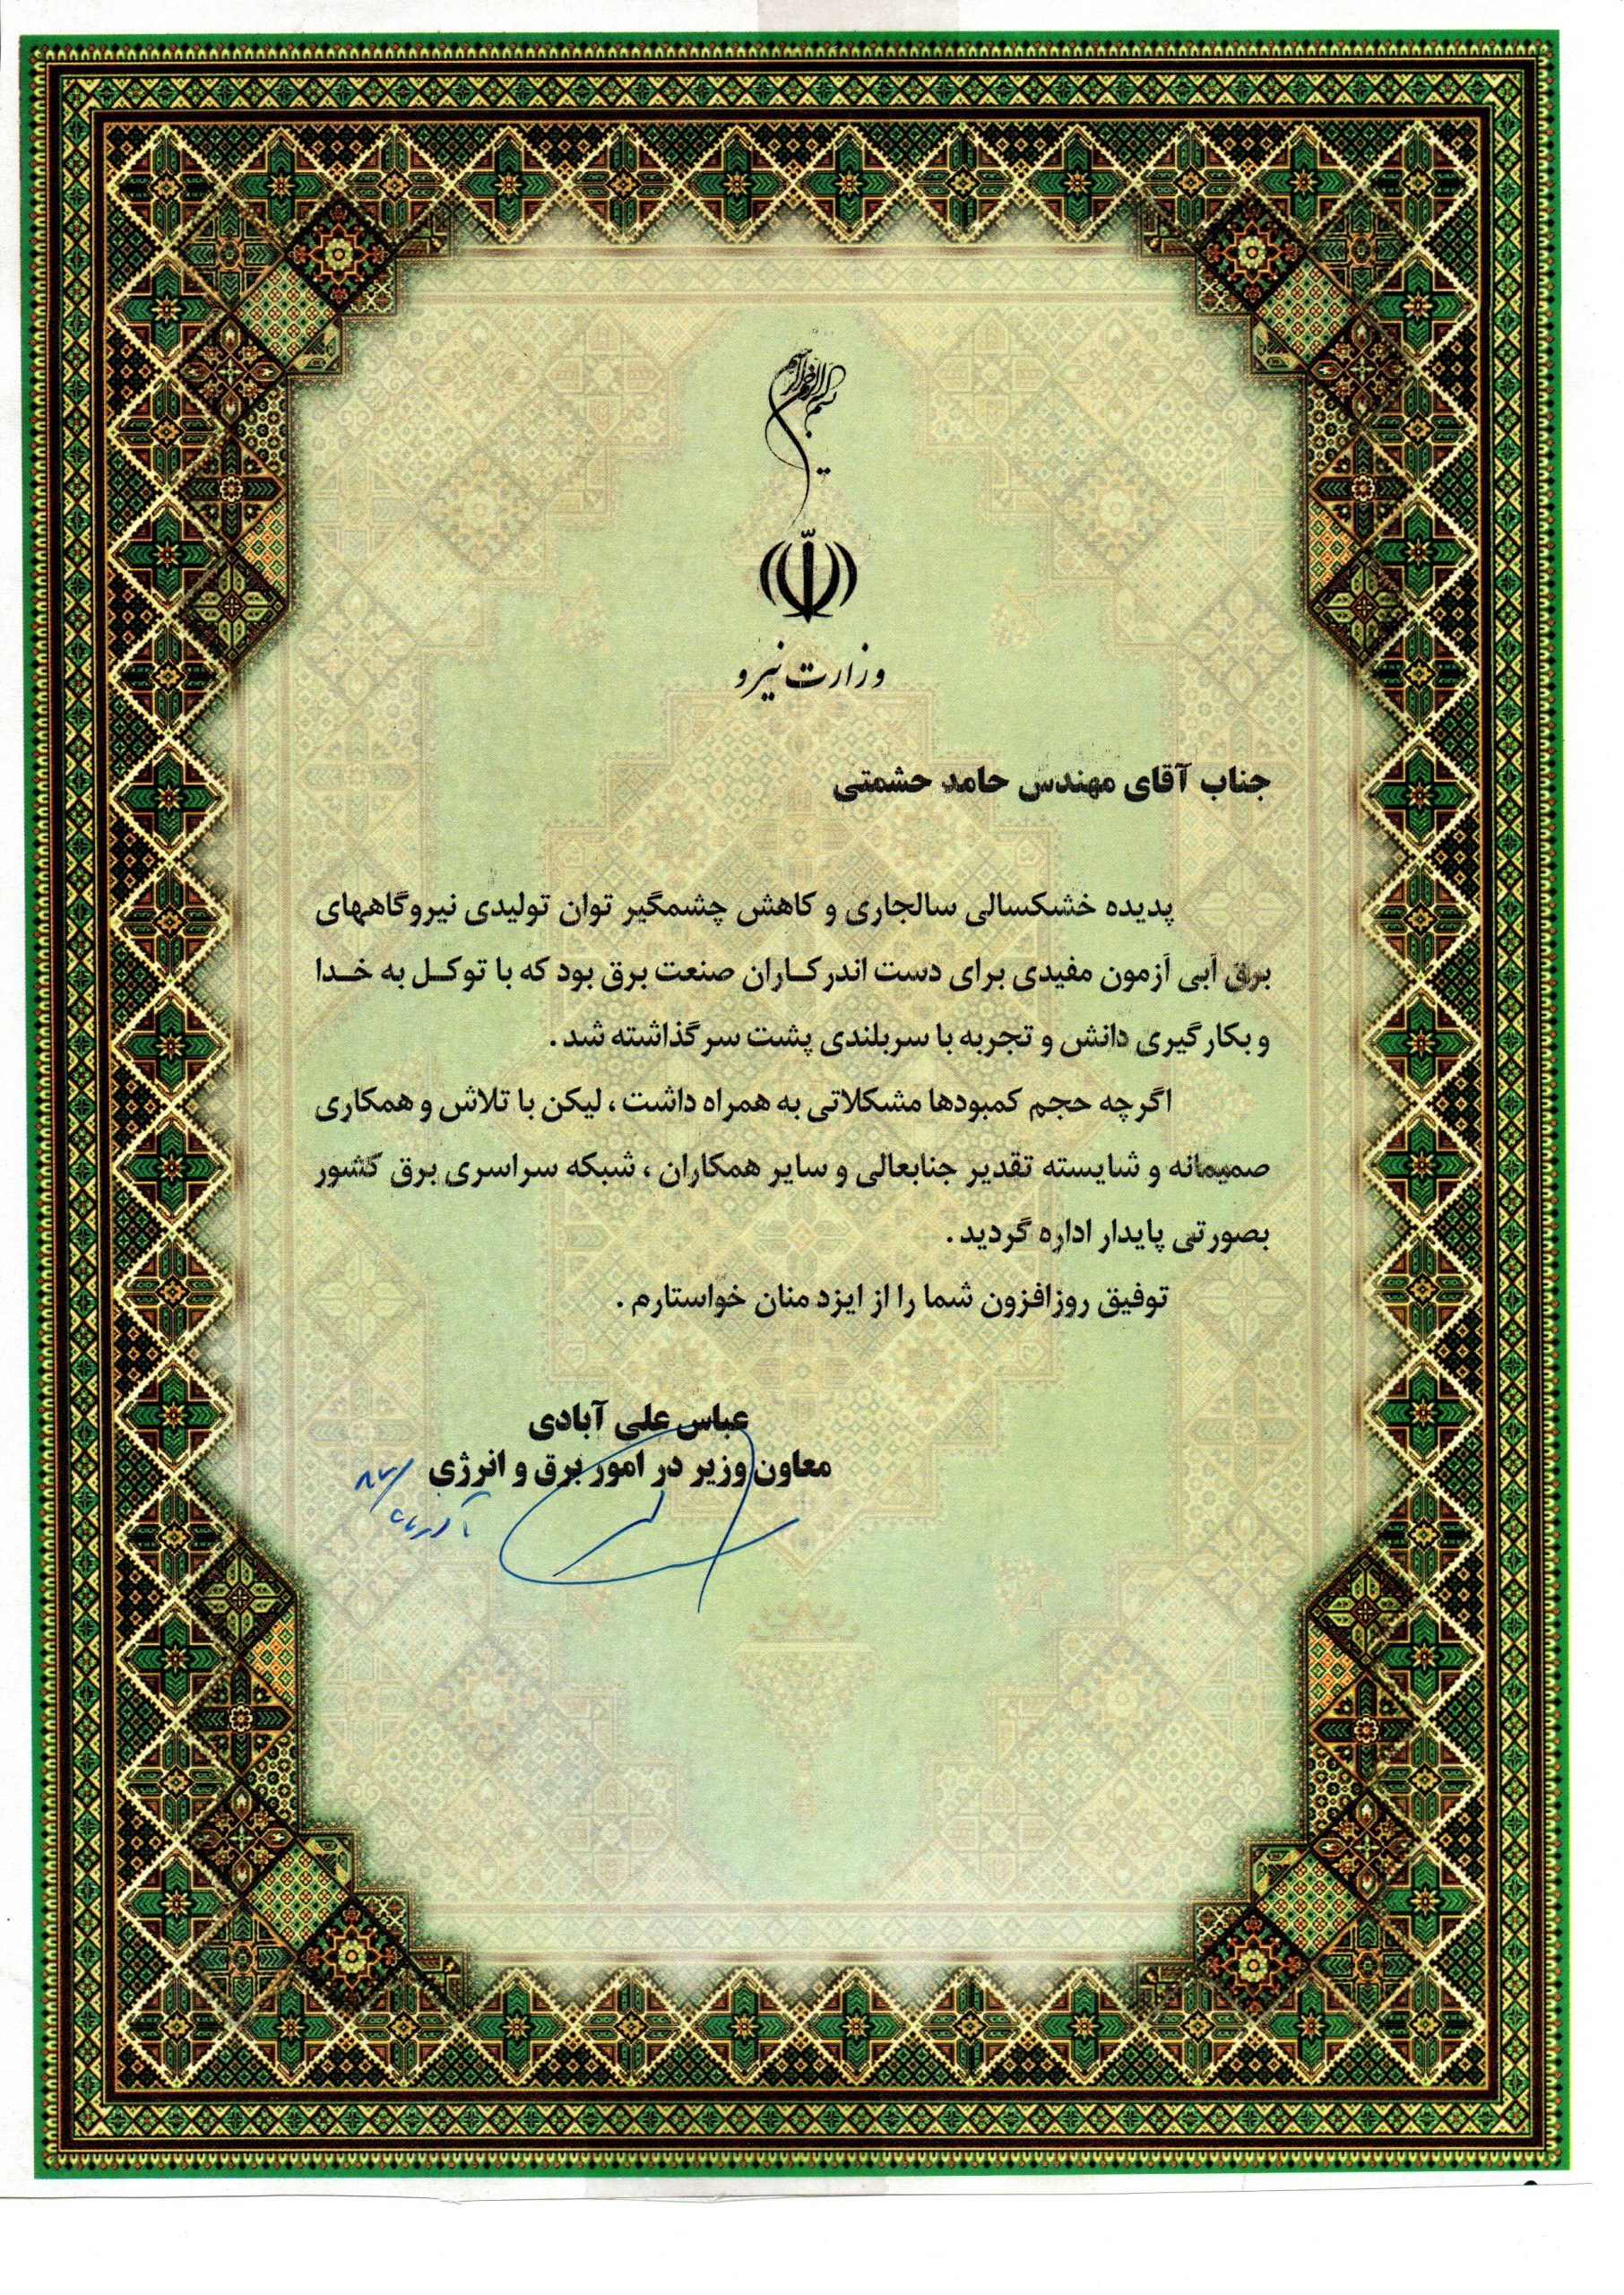 بسم الله الرحمن الرحیم
وزارت نیرو
جناب آقای مهندس حامد حشمتی
پدیده خشکسالی سالجاری و کاهش چشمگیر توان تولیدی نیروگاههای
برق آبی آزمون مفیدی برای دست اندرکاران صنعت برق بود که با توکل به خدا
و بکارگیری دانش و تجربه با سربلندی پشت سر گذاشته شد .
اگرچه حجم کمبودها مشکلاتی به همراه داشت ، لیکن با تلاش و همکاری
صمیمانه و شایسته تقدیر جنابعالی و سایر همکاران ، شبکه سراسری برق کشور
بصورتی پایدار اداره گردید .
توفیق روزافزون شما را از ایزد منان خواستارم .
عباس علی آبادی
معاون وزیر در امور برق و انرژی